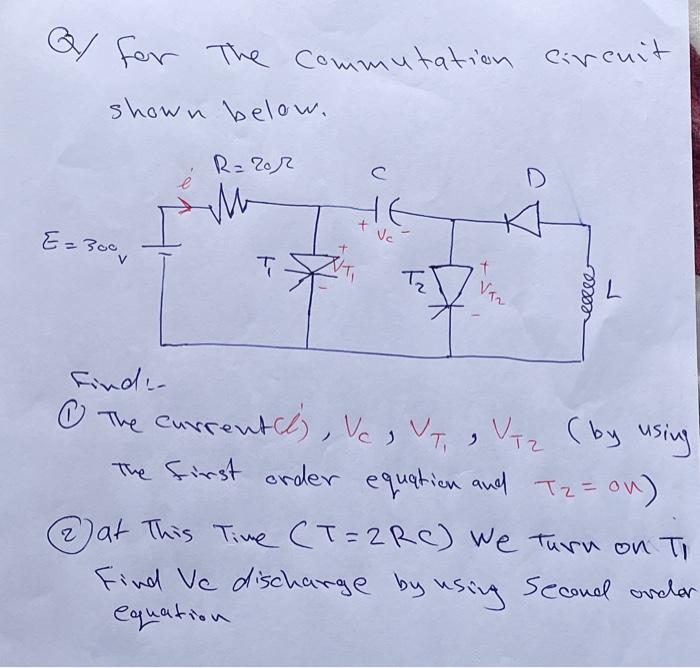 Q/ for The commutation circuit
shown below.
R = 20Ω
C
D
i
E = 300v
+ Vc -
T1
+
VT1
-
T2
+
VT2
-
L
Find:-
① The current (i), Vc, VT1, VT2 (by using
The first order equation and T2 = on)
② at This Time (T = 2RC) We Turn on T1
Find Vc discharge by using Second order
equation